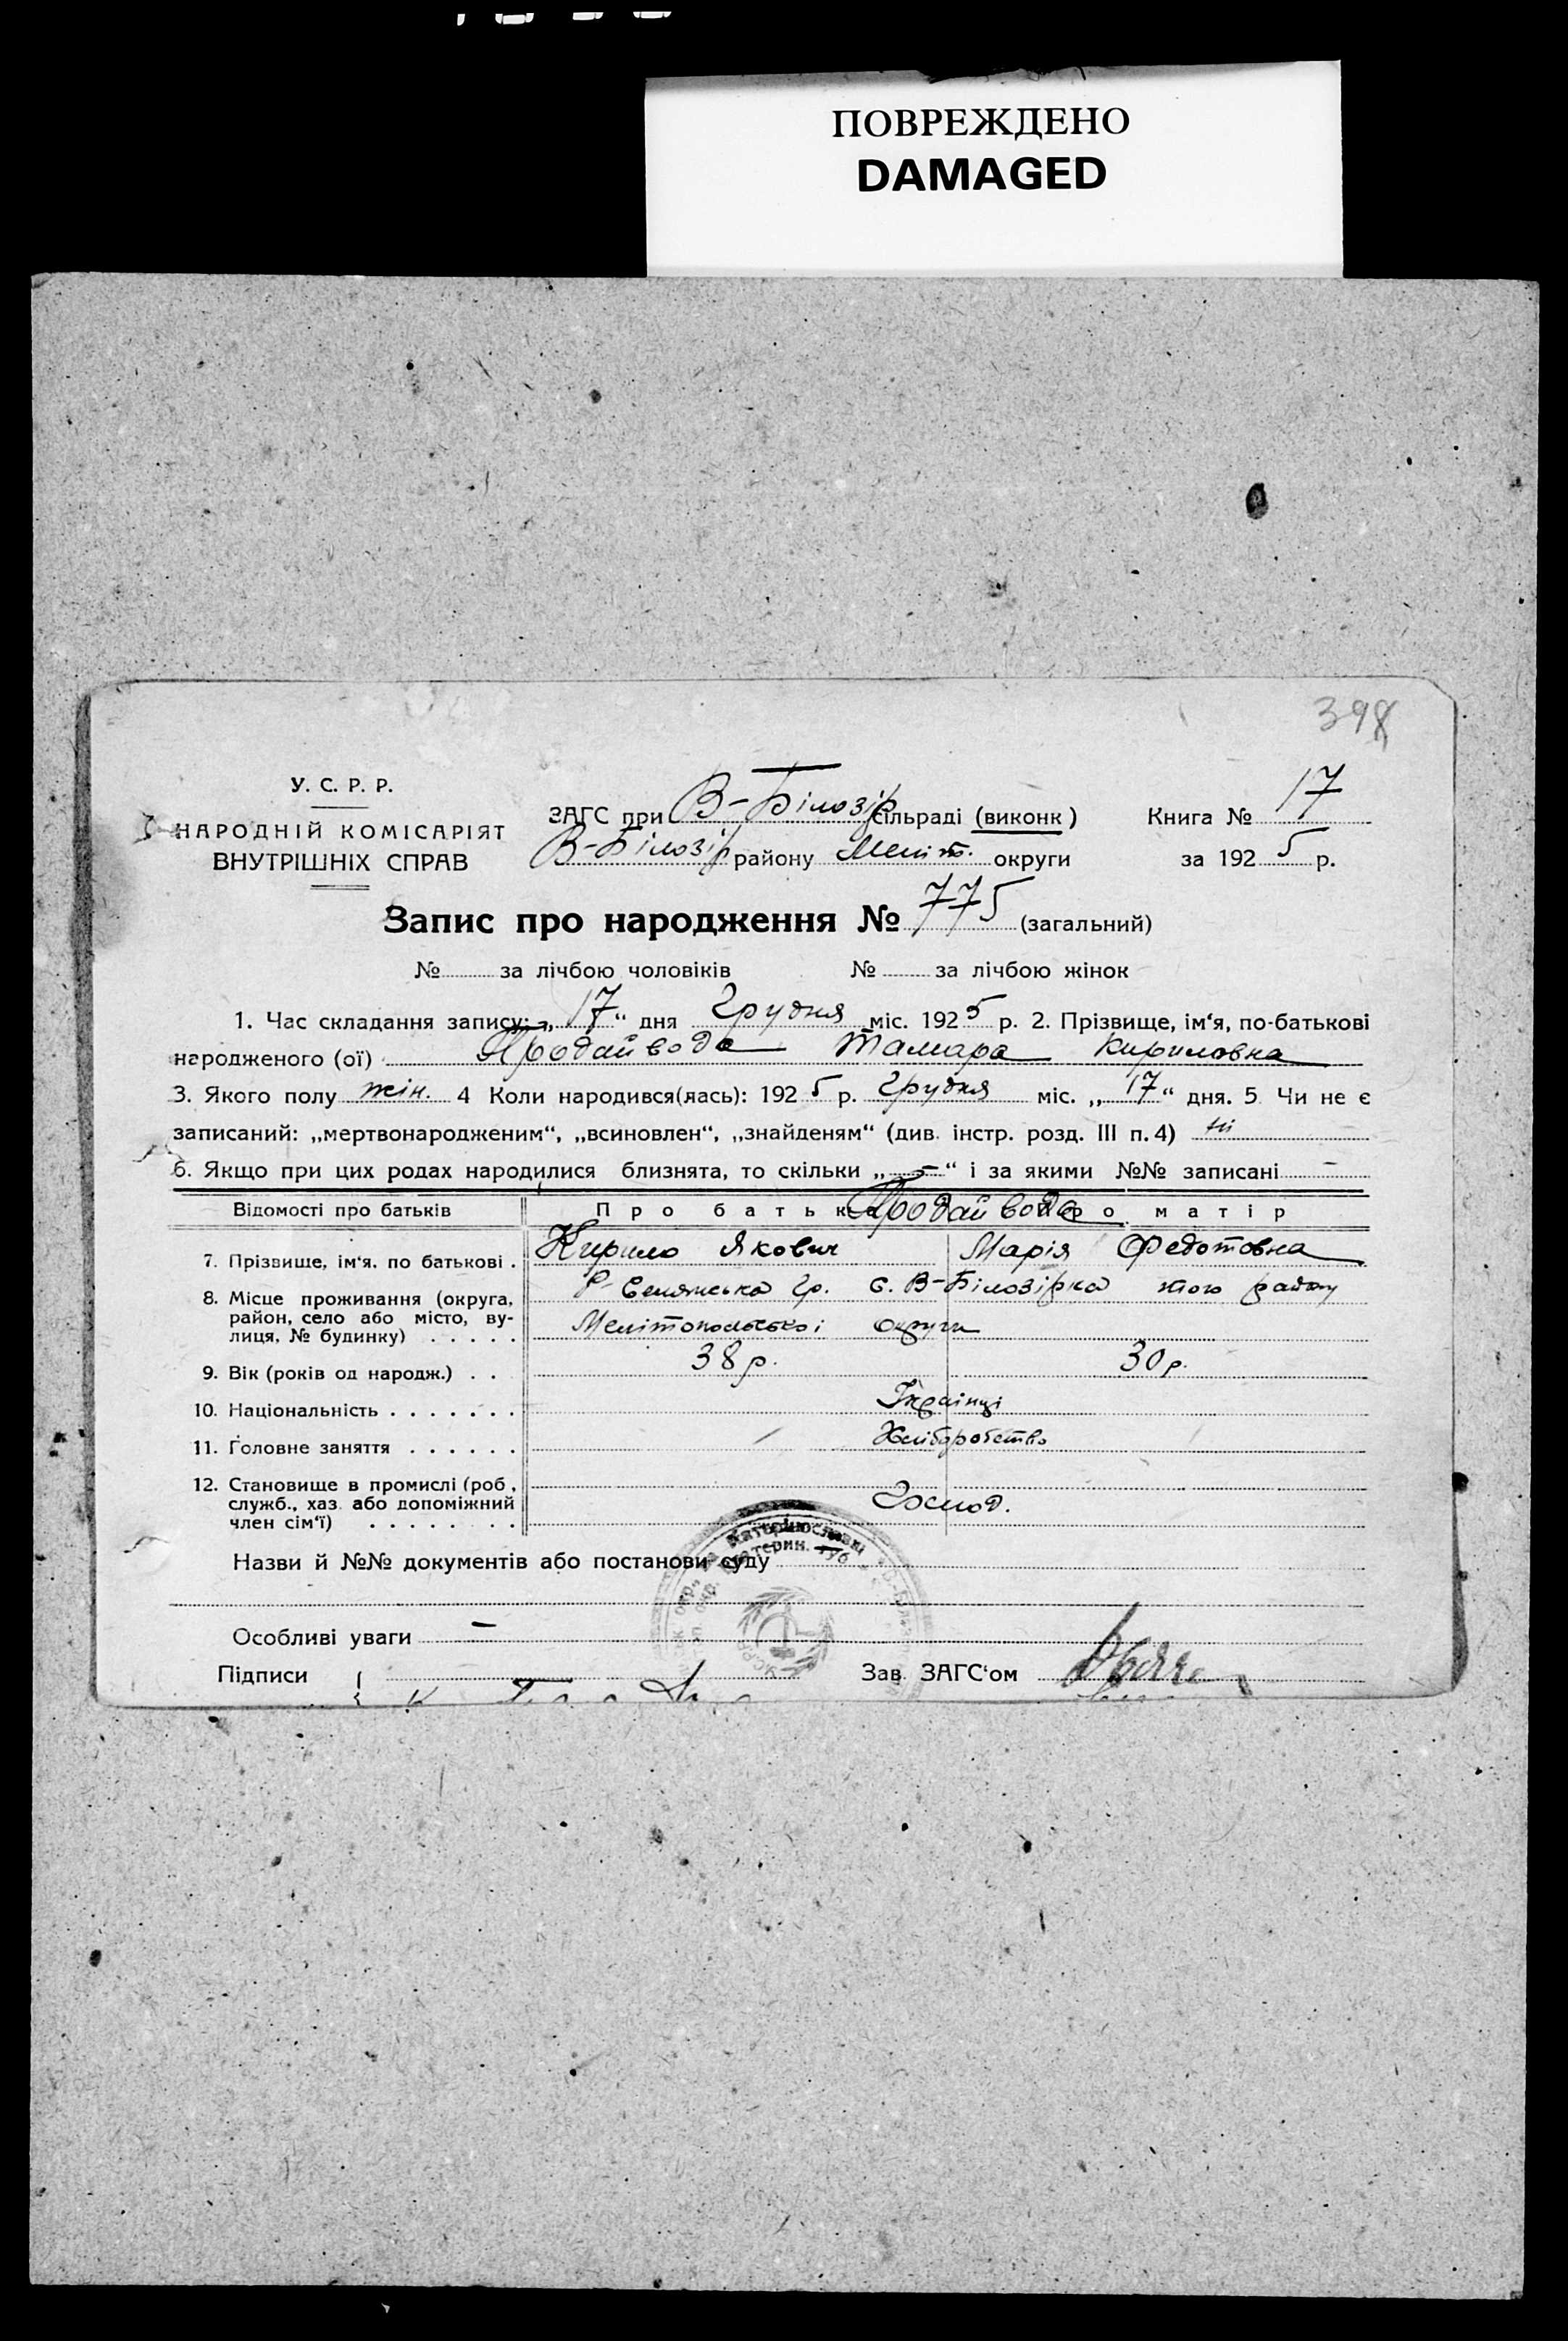 ПОВРЕЖДЕНО
DAMAGED
398
У. С. Р. Р.
НАРОДНІЙ КОМІСАРІЯТ
ВНУТРІШНІХ СПРАВ
ЗАГС при В-Білозір сільраді (виконк)
В-Білозір району Меліт. округи
Книга № 17
за 1925 р.
Запис про народження № 775 (загальний)
№ за лічбою чоловіків № за лічбою жінок
1. Час складання запису: „17“ дня Грудня міс. 1925 р. 2. Прізвище, ім‘я, по-батькові
народженого (ої) Продайвода Тамара Кириловна
3. Якого полу жін. 4 Коли народився(лась): 1925 р. Грудня міс. „17“ дня. 5 Чи не є
записаний: „мертвонародженим“, „всиновлен“, „знайденям“ (див. інстр. розд. III п. 4) ні
6. Якщо при цих родах народилися близнята, то скільки „—“ і за якими №№ записані —
Відомості про батьків Про батька Продайвода Про матір
7. Прізвище, ім‘я, по батькові . Кирило Якович Марія Федотовна
8. Місце проживання (округа, район, село або місто, вулиця, № будинку) . . . . . Селянська гр. с. В-Білозірка того району
Мелітопольської округи
9. Вік (років од народж.) . . 38 р. 30 р.
10. Національність . . . . . . . Українці
11. Головне заняття . . . . . . Хліборобство
12. Становище в промислі (роб, служб., хаз. або допоміжний член сім‘ї) . . . . . . . Господ.
Назви й №№ документів або постанови суду
Особливі уваги —
Підписи Зав. ЗАГС‘ом